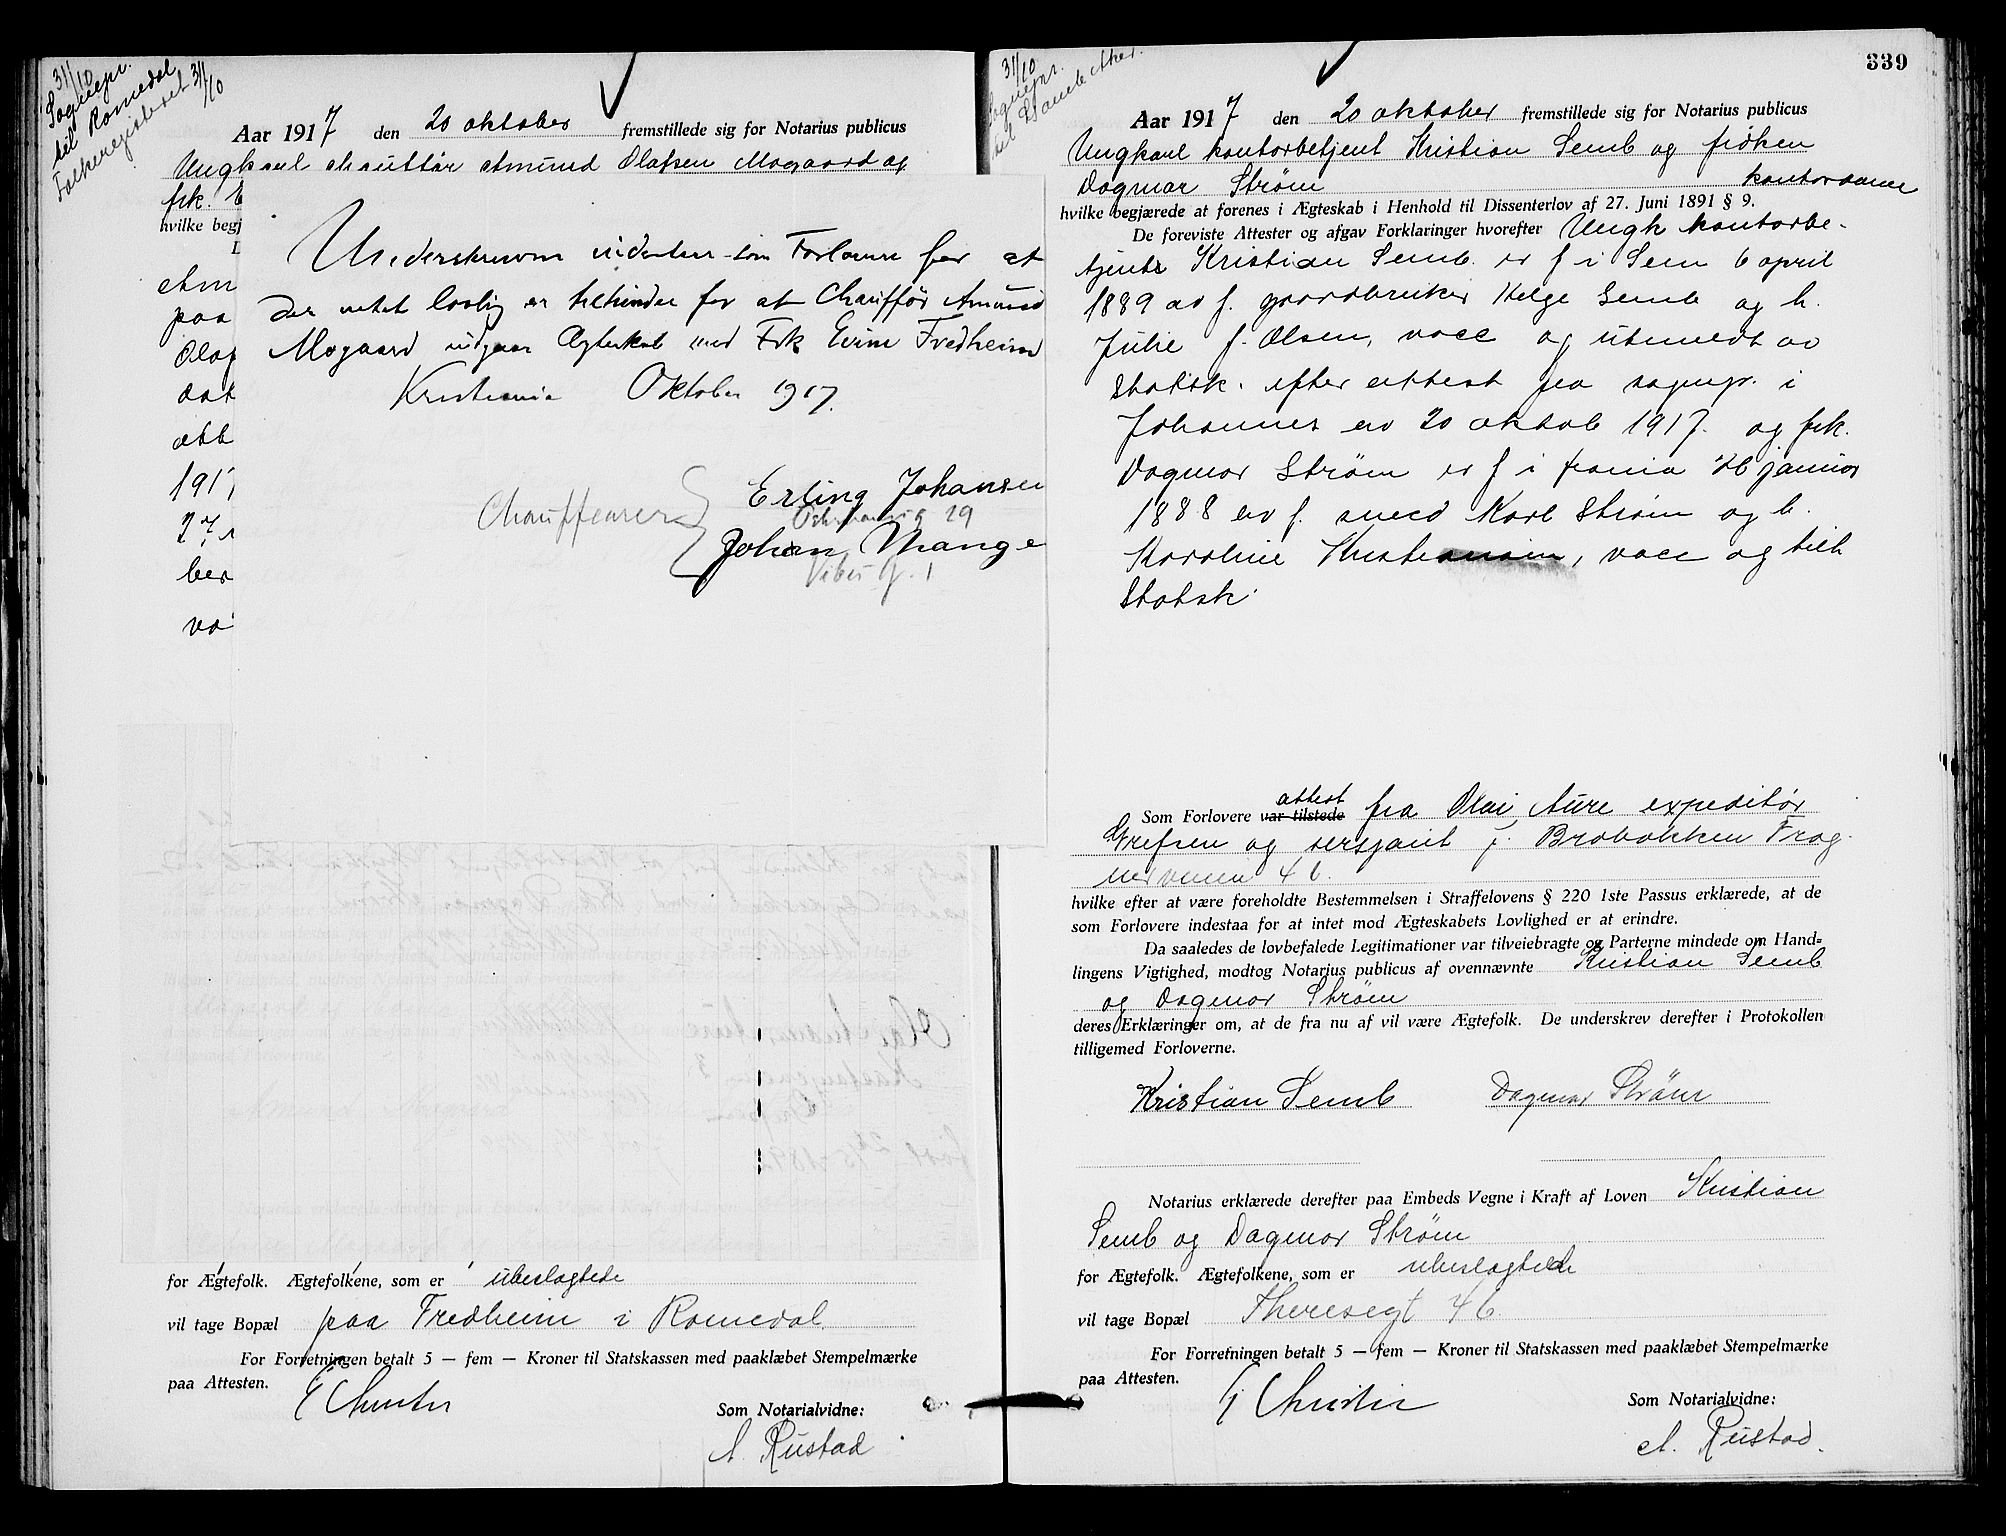 31/10
Sognepr.
til Romedal
Folkeregisteret 31/10
Aar 1917 den 20 oktober fremstillede sig for Notarius publicus
Ungkarl chauffør Amund Olafsen Mogaard og
frk. E
hvilke begj
Underskrevne indestaar som Forlovere for at
Amu
der intet lovlig er tilhinder for at Chauffør Amund
paa
Mogaard indgaar Ægteskab med Frk Fredheim
Olaf
Kristiania Oktober 1917.
dat
att
191
Erling Johansen
Chauffeurer
29
27
Johan Mange
Vibes G. 1
ber
va
for Ægtefolk. Ægtefolkene, som er ubeslagtede
vil tage Bopæl paa Fredheim i Romedal
For Forretningen betalt 5 — fem — Kroner til Statskassen med paaklæbet Stempelmærke
paa Attesten.
Som Notarialvidne:
A. Rustad
339
31/10
Sognepr.
Aar 1917 den 20 oktober fremstillede sig for Notarius publicus
Ungkarl kontorbetjent Kristian Semb og frøken
Dagmar Strøm kontordame
hvilke begjærede at forenes i Ægteskab i Henhold til Dissenterlov af 27. Juni 1891 § 9.
De foreviste Attester og afgav Forklaringer hvorefter Ungk kontorbe-
tjent Kristian Semb er f i Sem 6 april
1889 av f. gaardbruker Helge Semb og h.
Julie f. Olsen, vacc og utmeldt av
Statsk. efter attest fra sognepr. i
Johannes av 20 oktob 1917. og frk.
Dagmar Strøm er f i 26 januar
1888 av f. smed Karl Strøm og h.
Karoline Kristiansen, vacc og tilh
Statsk.
Som Forlovere var tilstede attest fra Olai Aure expeditør
Grefsen og sersjant J. Brobakken Frog-
nerveien 46.
hvilke efter at være foreholdte Bestemmelsen i Straffelovens § 220 1ste Passus erklærede, at de
som Forlovere indestaa for at intet mod Ægteskabets Lovlighed er at erindre.
Da saaledes de lovbefalede Legitimationer var tilveiebragte og Parterne mindede om Hand-
lingens Vigtighed, modtog Notarius publicus af ovennævnte Kristian Semb
og Dagmar Strøm
deres Erklæringer om, at de fra nu af vil være Ægtefolk. De underskrev derefter i Protokollen
tilligemed Forloverne.
Kristian Semb Dagmar Strøm
Notarius erklærede derefter paa Embeds Vegne i Kraft af Loven Kristian
Semb og Dagmar Strøm
for Ægtefolk. Ægtefolkene, som er ubeslagtede
vil tage Bopæl Theresegt 46
For Forretningen betalt 5 — fem — Kroner til Statskassen med paaklæbet Stempelmærke
paa Attesten.
Som Notarialvidne:
A. Rustad.